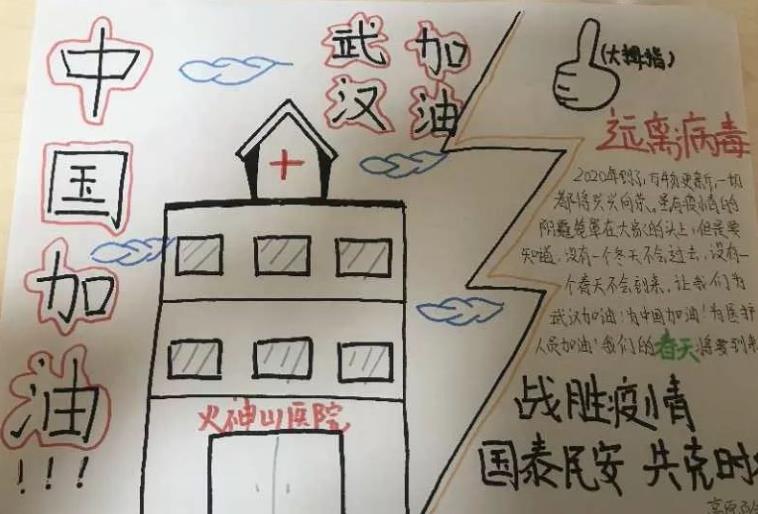 中国加油!!!
武汉
加油
(大拇指)
远离病毒
2020年到了,万物更新,一切
都将欣欣向荣。虽有疫情的
阴霾笼罩在大家的头上,但是要
知道,没有一个冬天不会过去,没有一
个春天不会到来,让我们为
武汉加油!为中国加油!为医护
人员加油!我们的春天将要到来
火神山医院
战胜疫情
国泰民安 共克时